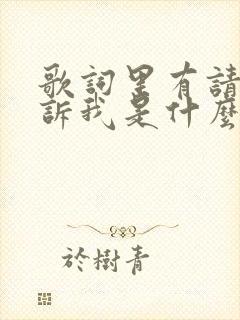 歌詞里有請
訴我是什麼
於樹青